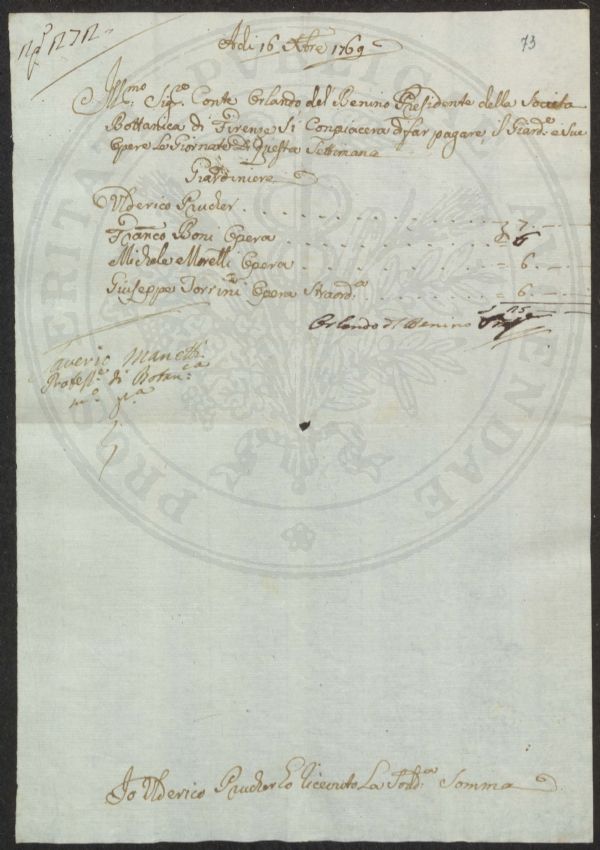 73
Adi 16 Xbre 1769
Illmo: Sigre: Conte Orlando del Benino Presidente della Societa
Bottanica di Firenze Si Conpiacera di far pagare, il Giard:e e Sue
Opere Le Giornate di Questa Settimana
Giardiniere
Ulderico Prucher
7
Franco Boni Opera
6
Michele Moretti Opera
6
Giuseppe Torrini Opera Straord:a
6
Orlando del Benino
averio Manetti
Profess:e di Botan:ca
Io Ulderico Prucher O Riceuto La Sodd:a Somma
PROSPERITATI PUBLICAE AUGENDAE